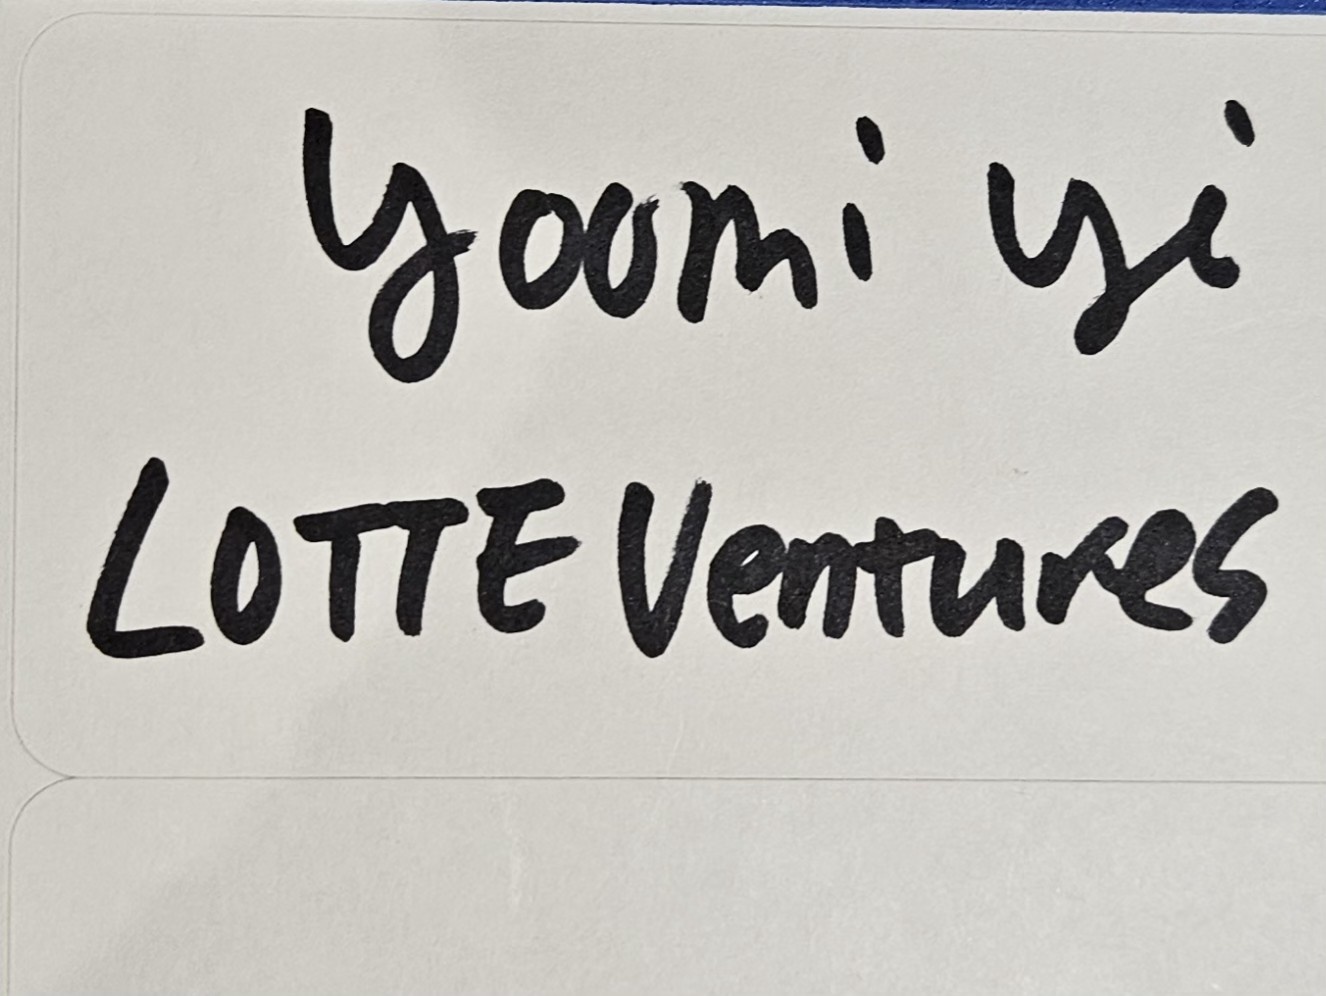 Yoomi Yi
LOTTE Ventures